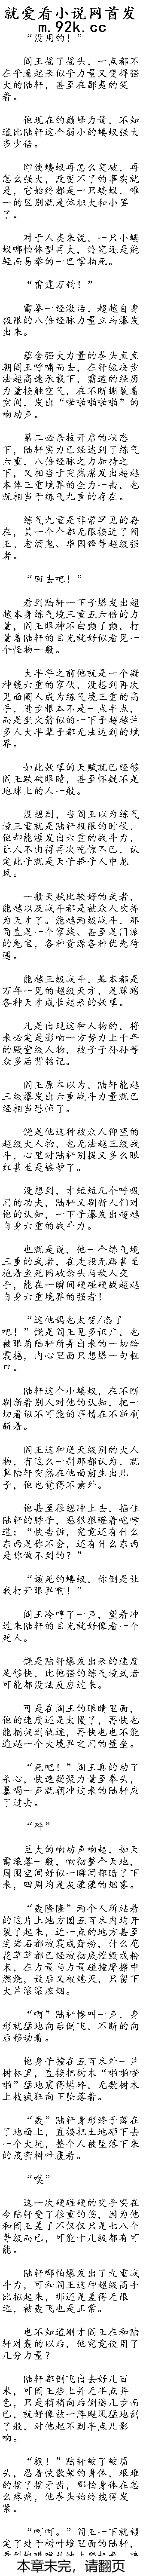 就爱看小说网首发
m.92k.cc
“没用的！”
阎王摇了摇头，一点都不
在乎看起来似乎力量又变得强
大的陆轩，甚至在鄙夷的笑
着。
他现在的巅峰力量，不知
道比陆轩这个弱小的蝼蚁强大
多少倍。
即使蝼蚁再怎么突破，再
怎么强大，改变不了的事实就
是，它始终都是一只蝼蚁，唯
一的区别就是体积大和小罢
了。
对于人类来说，一只小蝼
蚁哪怕体型再大，终究还是能
轻而易举的一巴掌拍死。
“雷霆万钧！”
雷拳一经激活，超越自身
极限的八倍经脉力量立马爆发
出来。
蕴含强大力量的拳头直直
朝阎王呼啸而去，在轩辕决步
法超高速承载下，霸道的经历
力量接触空气，在不断撕裂着
空间，发出“啪啪啪啪啪”的
响动声。
第二必杀技开启的状态
下，陆轩实力已经达到了练气
六重，八倍经脉之力加持之
下，又相当于突然爆发出超越
本体三重境界的全力一击，也
就相当于练气九重的存在。
练气九重是非常罕见的存
在，其一个个都无限接近了阎
王、老酒鬼、华国锋等超级强
者。
“回去吧！”
看到陆轩一下子爆发出超
越本身练气境三重五六倍的力
量，阎王眼神不由颤了颤，打
量着陆轩的目光就好似看见一
个怪物一般。
大半年之前他就是一个凝
神镜六重的家伙，没想到再次
见面阉人成为练气境三重的高
手，进步根本不是一点半点，
而是坐火箭似的一下子超越许
多人大半辈子都无法达到的境
界。
如此妖孽的天赋就已经够
阎王跌破眼睛，甚至怀疑不是
地球上的人一般。
没想到，当阎王以为练气
境三重就是陆轩极限的时候，
他却能爆发出六重的战斗力，
让人不由得再次吃惊不已，认
定此子就是天子骄子人中龙
凤。
一般天赋比较好的武者，
能越以及战斗都是被众人吹捧
为天才了。能越两级战斗，那
简直是一个家族、甚至是门派
的魁宝，各种资源各种优先待
遇。
能越三级战斗，基本都是
万年一见的超级天才，是踩踏
各种天才成长起来的妖孽。
凡是出现这种人物的，将
来必定是影响一方势力上千年
的殿堂级人物，被子子孙孙等
众多后背铭记。
阎王原本以为，陆轩能越
三级爆发出六重战斗力量就已
经相当恐怖了。
饶是他这种被众人仰望的
超级大人物，也无法越三级战
斗，心里对陆轩别提又多么眼
红甚至是嫉妒了。
没想到，才短短几个呼吸
间的功夫，陆轩又刷新人们对
他的认知，一下子爆发出超越
自身六重的战斗力。
也就是说，他一个练气境
三重的武者，在走投无路甚至
抱着鱼死网破念头与敌人交
手，能在一瞬间硬碰硬战超越
自身六重境界的强者！
“这他妈也太变/态了
吧！”饶是阎王见多识广，也
被眼前陆轩所弄出来的一切给
震撼，内心里面只想爆一句粗
口。
陆轩这个小蝼蚁，在不断
刷新着别人对他的认知，把一
切看似不可能的事情在不断刷
新着。
阎王这种逆天级别的大人
物，有这么一刹那都认为，就
算陆轩突然在他面前生出儿
子，他也觉得不意外。
他甚至很想冲上去，掐住
陆轩的脖子，恶狠狠瞪着咆哮
道：“快告诉，究竟还有什么
东西是你不会，还有什么东西
是你做不到的？”
“该死的蝼蚁，你倒是让
我打开眼界啊！”
阎王冷哼了一声，望着冲
过来陆轩的目光就好像看一个
死人。
饶是陆轩爆发出来的速度
足够快，比他强的练气境武者
可能都没法反应过来。
可是在阎王的眼睛里面，
他的速度还是太慢了，再快也
能捕捉到轨迹，再快也也不能
逾越一个大境界之间的壁垒。
“死吧！”阎王真的动了
杀心，快速凝聚力量至拳头，
暴喝一声就朝冲过来的陆轩应
了过去。
“砰”
巨大的响动声响起，如天
雷滚落一般，响彻整个天地，
周围空间好似一瞬间都暗了下
来，四周均是灰蒙蒙的烟雾。
“轰隆隆”两个人所站着
的这片土地方圆五百米内均开
裂了起来，近一点的地方甚至
连岩石都被震成粉，什么花
花草草都已经被彻底摧毁成粉
末，在力量与力量碰撞摩擦中
燃烧，最后又被熄灭，只留下
大片滚滚浓烟。
“啊”陆轩惨叫一声，身
形就猛地向后倒飞，不断的向
后移动着。
他身子撞在五百米外一片
树林里，直接把树木“啪啪啪
啪”猛地震得爆碎，无数树木
上枝疯狂向下坠落着。
“轰”陆轩身形终于落在
了地面上，直接把土地砸下去
一个大坑，整个人被坠落下来
的茂密树叶覆着。
“噗”
这一次硬碰硬的交手实在
令陆轩受了很重的伤，因为他
和阎王差了不仅仅只是七八个
等级而已，可能十几级都有可
能。
陆轩哪怕爆发出了九重战
斗力，可和阎王这种超级高手
比拟起来，那还是差得无限
远，被轰飞也是正常。
也不知道刚才阎王在和陆
轩对轰的以后，他究竟使用了
几分力量？
陆轩都倒飞出去好几百
米，可阎王脸上并无半点异
色，只是稍稍向后倒退几步而
已，就好像被一阵飓风猛地刮
了般，对他起不到半点儿影
响。
“额！”陆轩皱了皱眉
头，忍着快散架的身体，艰难
的摇了摇牙齿，哪怕身体在怎
么疼痛，他拳头始终拽得发
紧。
“呵呵。”阎王一下就锁
定了处于树叶堆里面的陆轩，
本章未完，请翻页